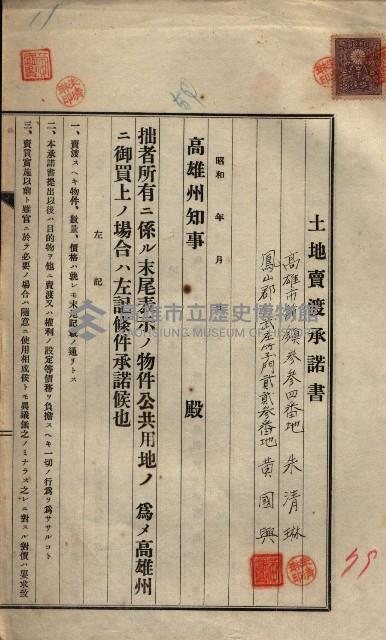 土地賣渡承諾書
高雄市 參參四番地 朱清琳
鳳山郡 貳貳參番地 黄國興
昭和 年 月
高雄州知事 殿
拙者所有ニ係ル末尾表示ノ物件公共用地ノ爲メ高雄州
ニ御買上ノ場合ハ左記條件承諾候也
左記
一、賣渡スヘキ物件、數量、價格ハ總テ末尾記載ノ通リトス
二、本承諾書提出以後ハ目的物ヲ他ニ賣渡又ハ權利ノ設定等債務ヲ負擔スヘキ一切ノ行爲ヲ爲ササルコト
三、賣買實施以前ト雖官ニ於テ必要ノ場合ハ隨意ニ使用相成候トモ異議無之ノミナラス之レニ對スル對價ハ要求致
高雄市立歷史博物館
KAOHSIUNG MUSEUM OF HISTORY